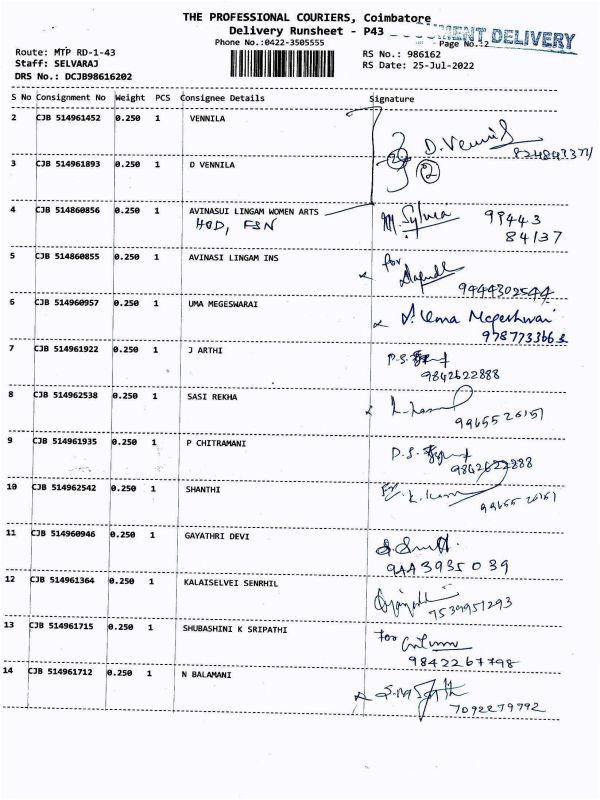 THE PROFESSIONAL COURIERS, Coimbatore
Delivery Runsheet - P43
DOCUMENT DELIVERY
Phone No.:0422-3505555
Page No.:2
Route: MTP RD-1-43
RS No.: 986162
Staff: SELVARAJ
RS Date: 25-Jul-2022
DRS No.: DCJB98616202
S No Consignment No Weight PCS Consignee Details Signature
2 CJB 514961452 0.250 1 VENNILA
D. Vennila
3 CJB 514961893 0.250 1 D VENNILA
2
4 CJB 514860856 0.250 1 AVINASUI LINGAM WOMEN ARTS M. Sylvia 99443
HOD, FSN 84137
5 CJB 514860855 0.250 1 AVINASI LINGAM INS for
9444302544
6 CJB 514960957 0.250 1 UMA MEGESWARAI Uma Mageshwari
9787733663
7 CJB 514961922 0.250 1 J ARTHI P.S.
9842622888
8 CJB 514962538 0.250 1 SASI REKHA
9965526151
9 CJB 514961935 0.250 1 P CHITRAMANI
9842622888
10 CJB 514962542 0.250 1 SHANTHI
9965526151
11 CJB 514960946 0.250 1 GAYATHRI DEVI
9443935039
12 CJB 514961364 0.250 1 KALAISELVEI SENRHIL
7539951293
13 CJB 514961715 0.250 1 SHUBASHINI K SRIPATHI for
9842267798
14 CJB 514961712 0.250 1 N BALAMANI
7092279792